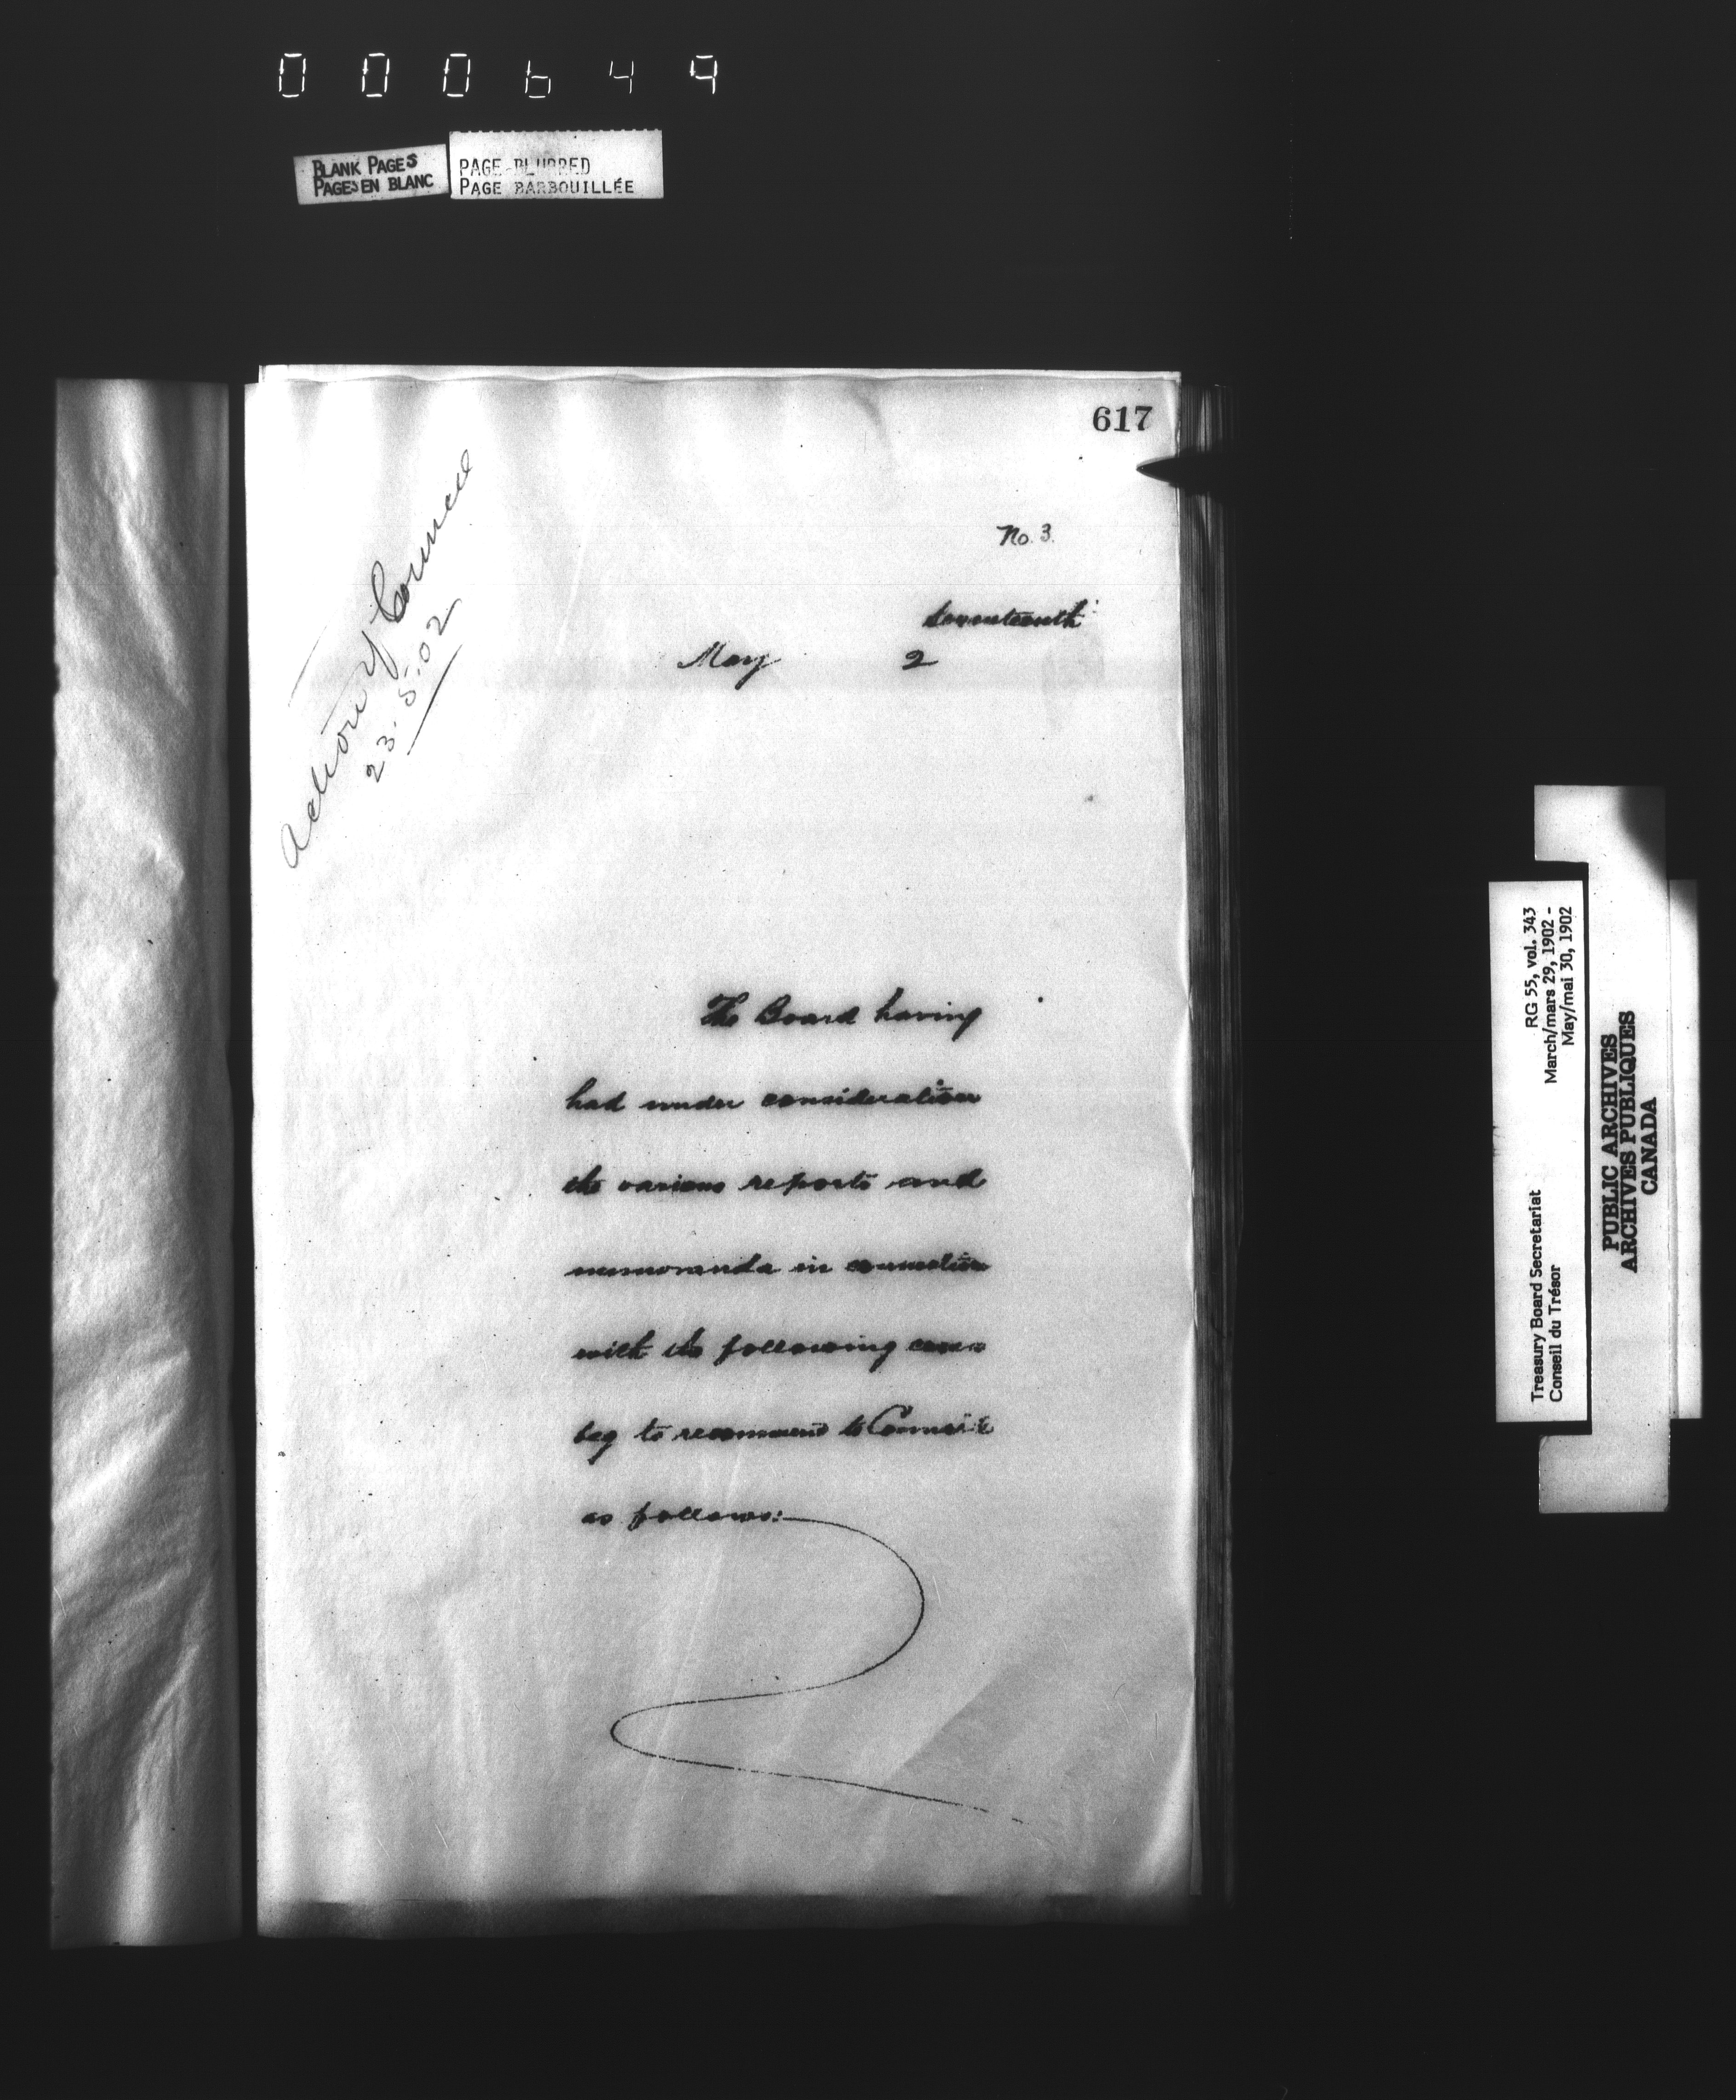 000649
BLANK PAGES
PAGES EN BLANC
PAGE BLURRED
PAGE BARBOUILLÉE
617
No. 3.
Action of Council
23.5.02
seventeenth
May 2
The Board having
had under consideration
the various reports and
memoranda in connection
with the following cases
beg to recommend to Council
as follows:
Treasury Board Secretariat
Conseil du Trésor
RG 55, vol. 343
March/mars 29, 1902 -
May/mai 30, 1902
PUBLIC ARCHIVES
ARCHIVES PUBLIQUES
CANADA